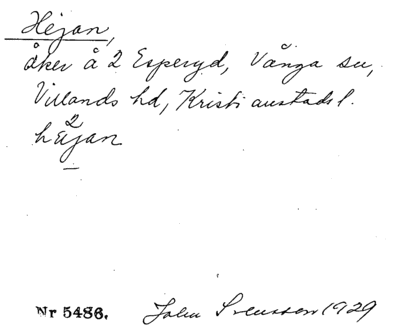 Hejan,
åker å 2 Esperyd, Vånga sn,
Villands hd, Kristianstads l.
2
häjan
Nr 5486. John Svensson 1929